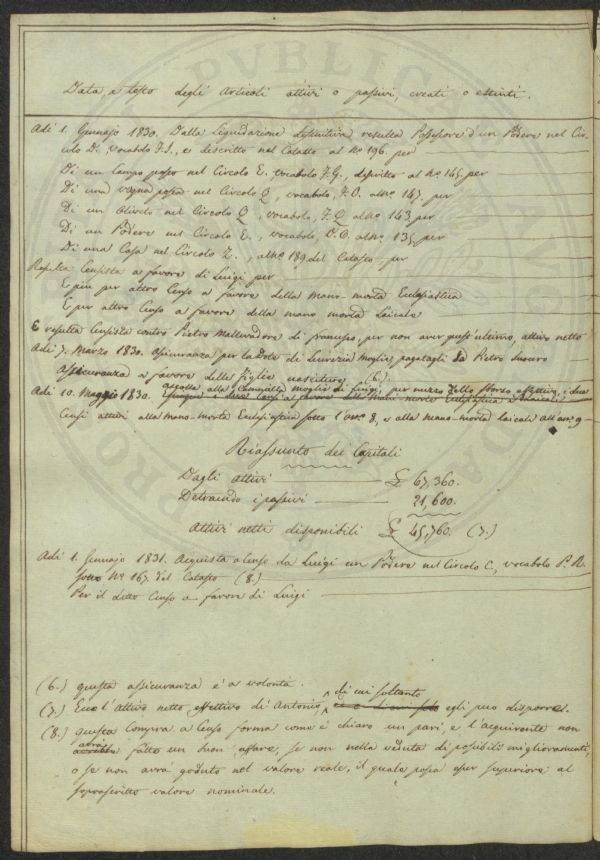 PVBLICA
Data e testo degli Articoli attivi o passivi, creati o estinti.
Adi 1. Gennajo 1830. Dalla Liquidazione definitiva resulta Possessore d'un Podere nel Cir-
colo D. vocabolo F.S., e descritto nel Catasto al No 196. per
Di un Campo posto nel Circolo E. vocabolo F.G., descritto al No 145. per
Di una vigna posta nel Circolo Q, vocabolo, F.O. al No 147. per
Di un Oliveto nel Circolo Q, vocabolo, F.Q. al No 143. per
Di un Podere nel Circolo E., vocabolo, O.O. al No 135. per
Di una Casa nel Circolo Z., al No 189. del Catasto per
Resulta Censista a favore di Luigi per
E piu per altro Censo a favore della mano-morta Eclesiastica
E per altro Censo a favore della mano morta Laicale
E resulta Censista contro Pietro Mallevadore di Francesco, per non aver quest'ultimo, attivo netto
Adi 7. Marzo 1830. Assicuranza per la Dote di Lucrezia moglie, pagatagli da Pietro Suocero
Assicuranza a favore delle Figlie nasciture (6.)
Adi 10. Maggio 1830. accolla alla moglie di Luigi, per mezzo dello Storno effettivo, i due
Censi attivi alla mano-morta Eclesiastica sotto l'arto 8, e alla mano-morta laicale all'arto 9
Riassunto dei Capitali
Dagli attivi £ 67,360.
Detraendo i passivi 21,600.
Attivi netti disponibili £ 45,760. (7.)
Adi 1. Gennajo 1831. Acquista a Censo da Luigi un Podere nel Circolo C., vocabolo P.R.
sotto No 167. del Catasto (8.)
Per il detto Censo a favore di Luigi
(6.) questa assicuranza e' a volonta.
di cui soltanto
(7.) Ecco l'attivo netto effettivo di Antonio, egli puo disporre.
(8.) questa Compra a Censo forma come e' chiaro un pari, e l'acquirente non
avrà fatto un buon affare, se non nella veduta di possibili miglioramenti,
o se non avrà goduto nel valore reale, il quale possa esser superiore al
soprascritto valore nominale.